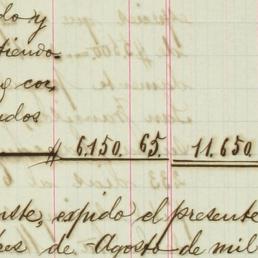 do y
tiendo-
y cor,
dos
$ 6.150. 65. 11.650.
iste, expido el presente
es de Agosto de mil